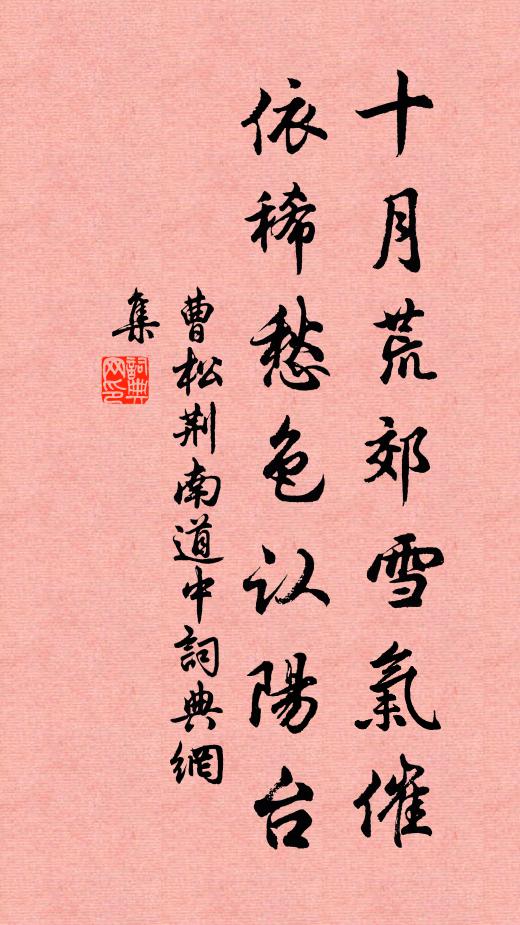 十月荒郊雪氣催
依稀愁色认陽台
曹松荆南道中詞典網
集
詞典網印